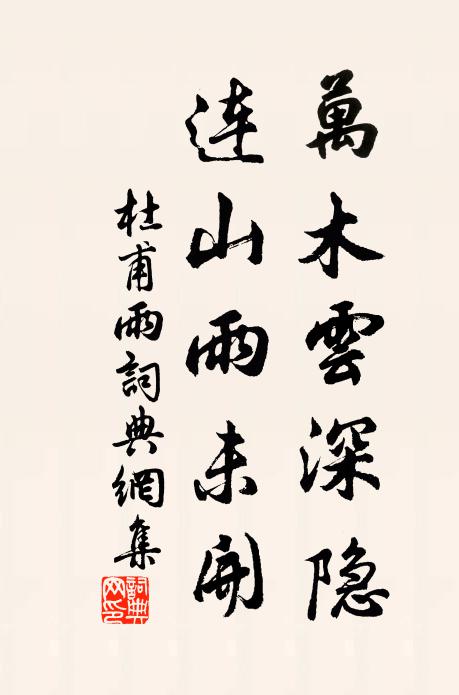 萬木雲深隐
连山雨未開
杜甫雨詞典網集
詞典网印